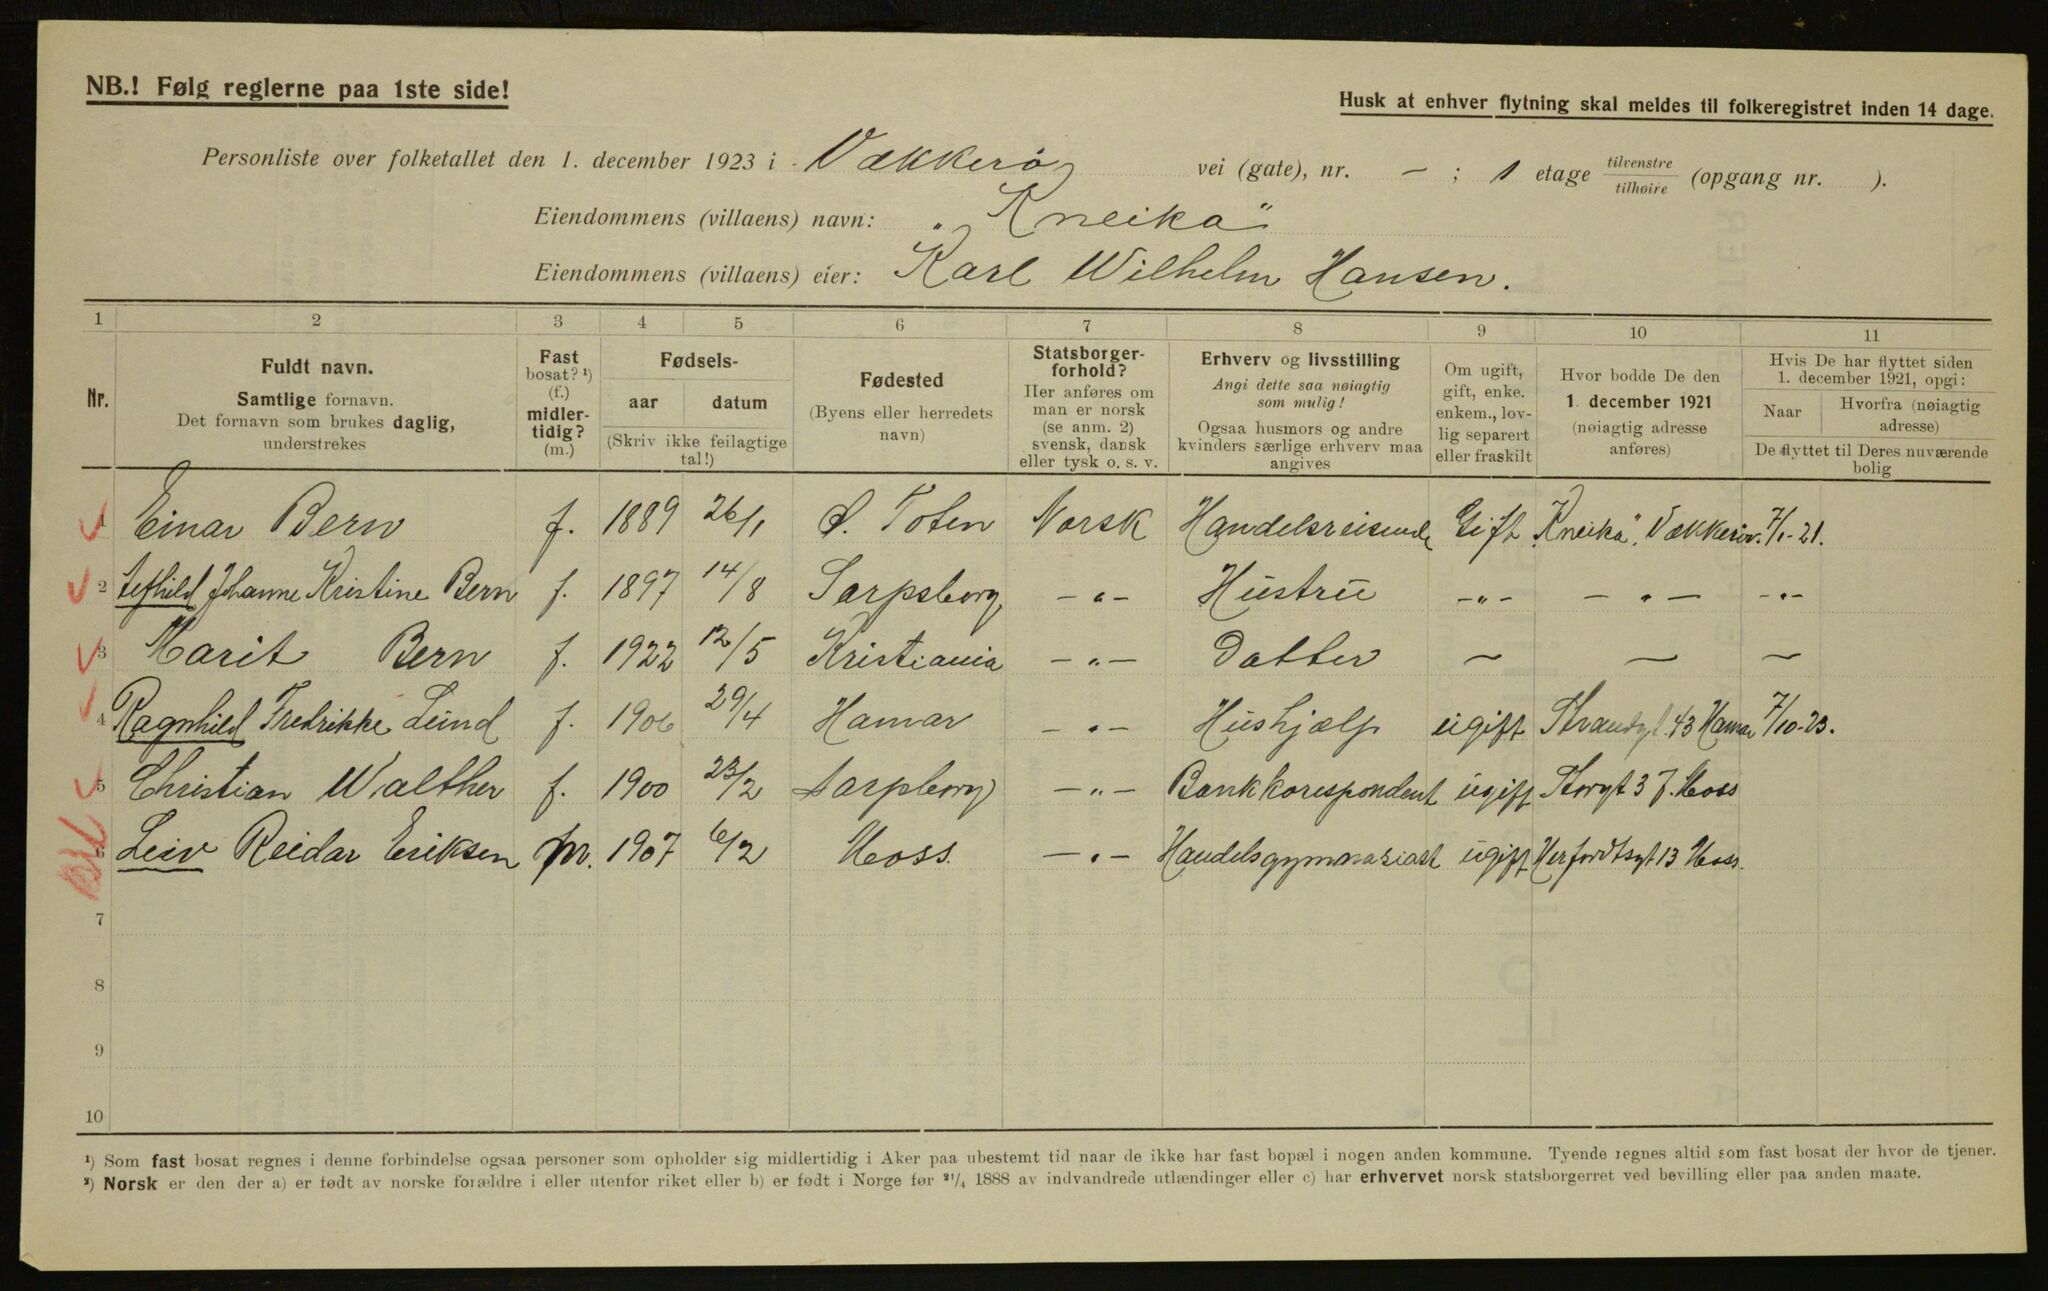 NB.! Følg reglerne paa 1ste side!
Husk at enhver flytning skal meldes til folkeregistret inden 14 dage.
Personliste over folketallet den 1. december 1923 i Vækkerø vei (gate), nr. – ; 1 etage tilvenstre/tilhøire (opgang nr. ).
Eiendommens (villaens) navn: „Kneika"
Eiendommens (villaens) eier: Karl Wilhelm Hansen.
1 2 3 4 5 6 7 8 9 10 11
Nr.
Fuldt navn.
Samtlige fornavn.
Det fornavn som brukes daglig,
understrekes
Fast
bosat? ¹)
(f.)
midler-
tidig?
(m.)
Fødsels-
aar datum
(Skriv ikke feilagtige
tal!)
Fødested
(Byens eller herredets
navn)
Statsborger-
forhold?
Her anføres om
man er norsk
(se anm. 2)
svensk, dansk
eller tysk o. s. v.
Erhverv og livsstilling
Angi dette saa nøiagtig
som mulig!
Ogsaa husmors og andre
kvinders særlige erhverv maa
angives
Om ugift,
gift, enke.
enkem., lov-
lig separert
eller fraskilt
Hvor bodde De den
1. december 1921
(nøiagtig adresse
anføres)
Hvis De har flyttet siden
1. december 1921, opgi:
Naar Hvorfra (nøiagtig
adresse)
De flyttet til Deres nuværende
bolig
1 Einar Bern f. 1889 26/1 Ø. Toten Norsk Handelsreisende Gift „Kneika". Vækkerøv. 7/1-21.
2 Johanne Kristine Bern f. 1897 14/8 Sarpsborg –„– Hustru –„– –„– –„–
3 Marit Bern f. 1922 12/5 Kristiania –„– Datter – – –
4 Ragnhild Fredrikke Lund f. 1906 29/4 Hamar –„– Hushjælp ugift Strandgt. 43 Hamar 7/10-23.
5 Christian Walther f. 1900 23/2 Sarpsborg –„– Bankkorespondent ugift Storgt 37. Moss
6 Leiv Reidar Eriksen m. 1907 6/2 Moss. –„– Handelsgymnasiast ugift Herfordtsgt 13 Moss.
7
8
9
10
¹) Som fast bosat regnes i denne forbindelse ogsaa personer som opholder sig midlertidig i Aker paa ubestemt tid naar de ikke har fast bopæl i nogen anden kommune. Tyende regnes altid som fast bosat der hvor de tjener.
²) Norsk er den der a) er født av norske forældre i eller utenfor riket eller b) er født i Norge før ²¹/₄ 1888 av indvandrede utlændinger eller c) har erhvervet norsk statsborgerret ved bevilling eller paa anden maate.